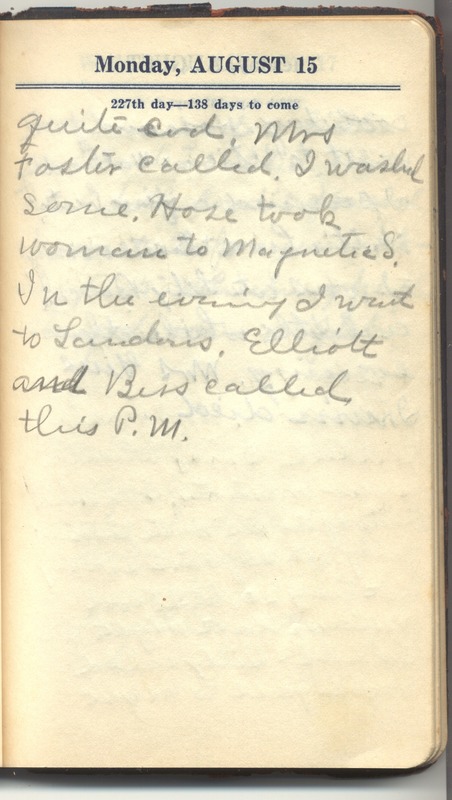 Monday, AUGUST 15
227th day—138 days to come
quite cool. Mrs
Foster called. I washed
some. Hose took
woman to Magnetic S.
In the evening I went
to Sanders. Elliott
and Bess called
this P.M.